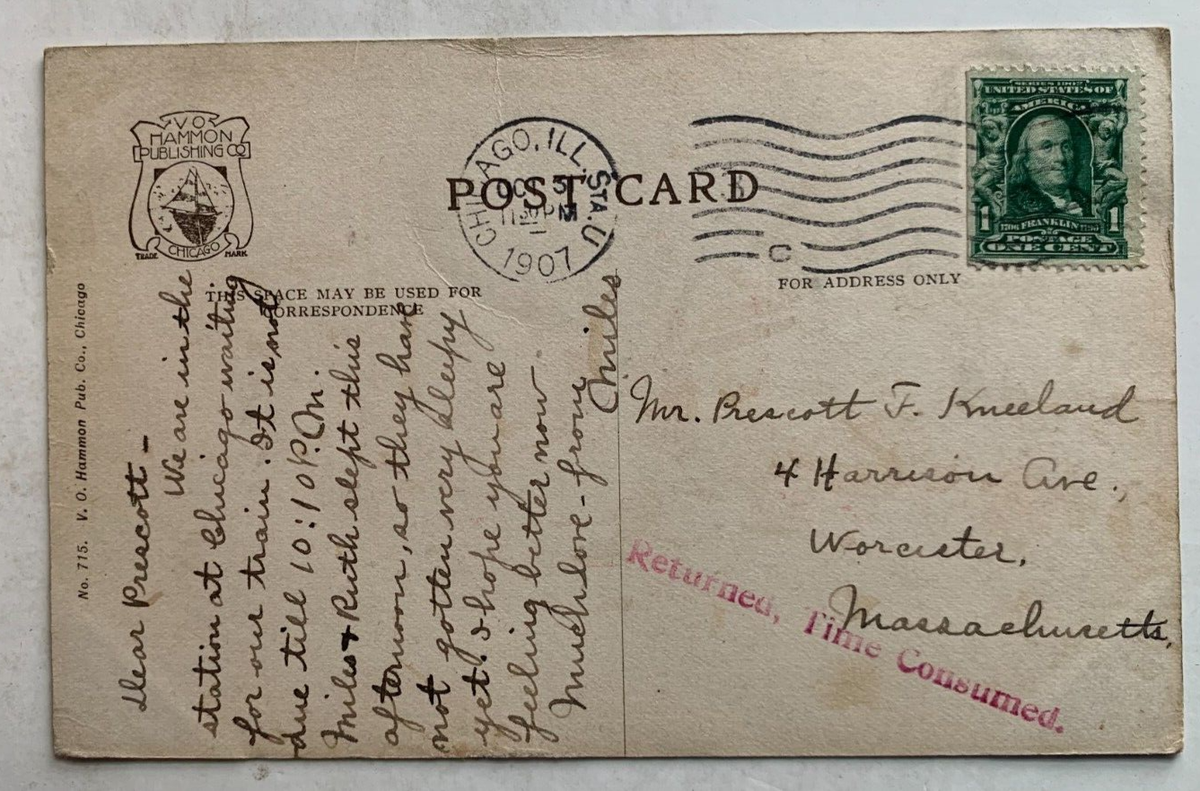 V O
HAMMON
PUBLISHING CO
CHICAGO
TRADE MARK
POST CARD
CHICAGO, ILL. STA. U
1907
C
SERIES 1902
UNITED STATES OF
AMERICA
1 1
FRANKLIN
POSTAGE
ONE CENT
THIS SPACE MAY BE USED FOR
CORRESPONDENCE
FOR ADDRESS ONLY
No. 715. V. O. Hammon Pub. Co., Chicago
Dear Prescott —
We are in the
station at Chicago waiting
for our train. It is not
due till 10:10 P.M.
Miles + Ruth slept this
afternoon, so they have
not gotten very sleepy
yet. I hope you are
feeling better now.
Much love - from
Miles
Mr. Prescott F. Kneeland
4 Harrison Ave.,
Worcester,
Massachusetts.
Returned, Time Consumed.